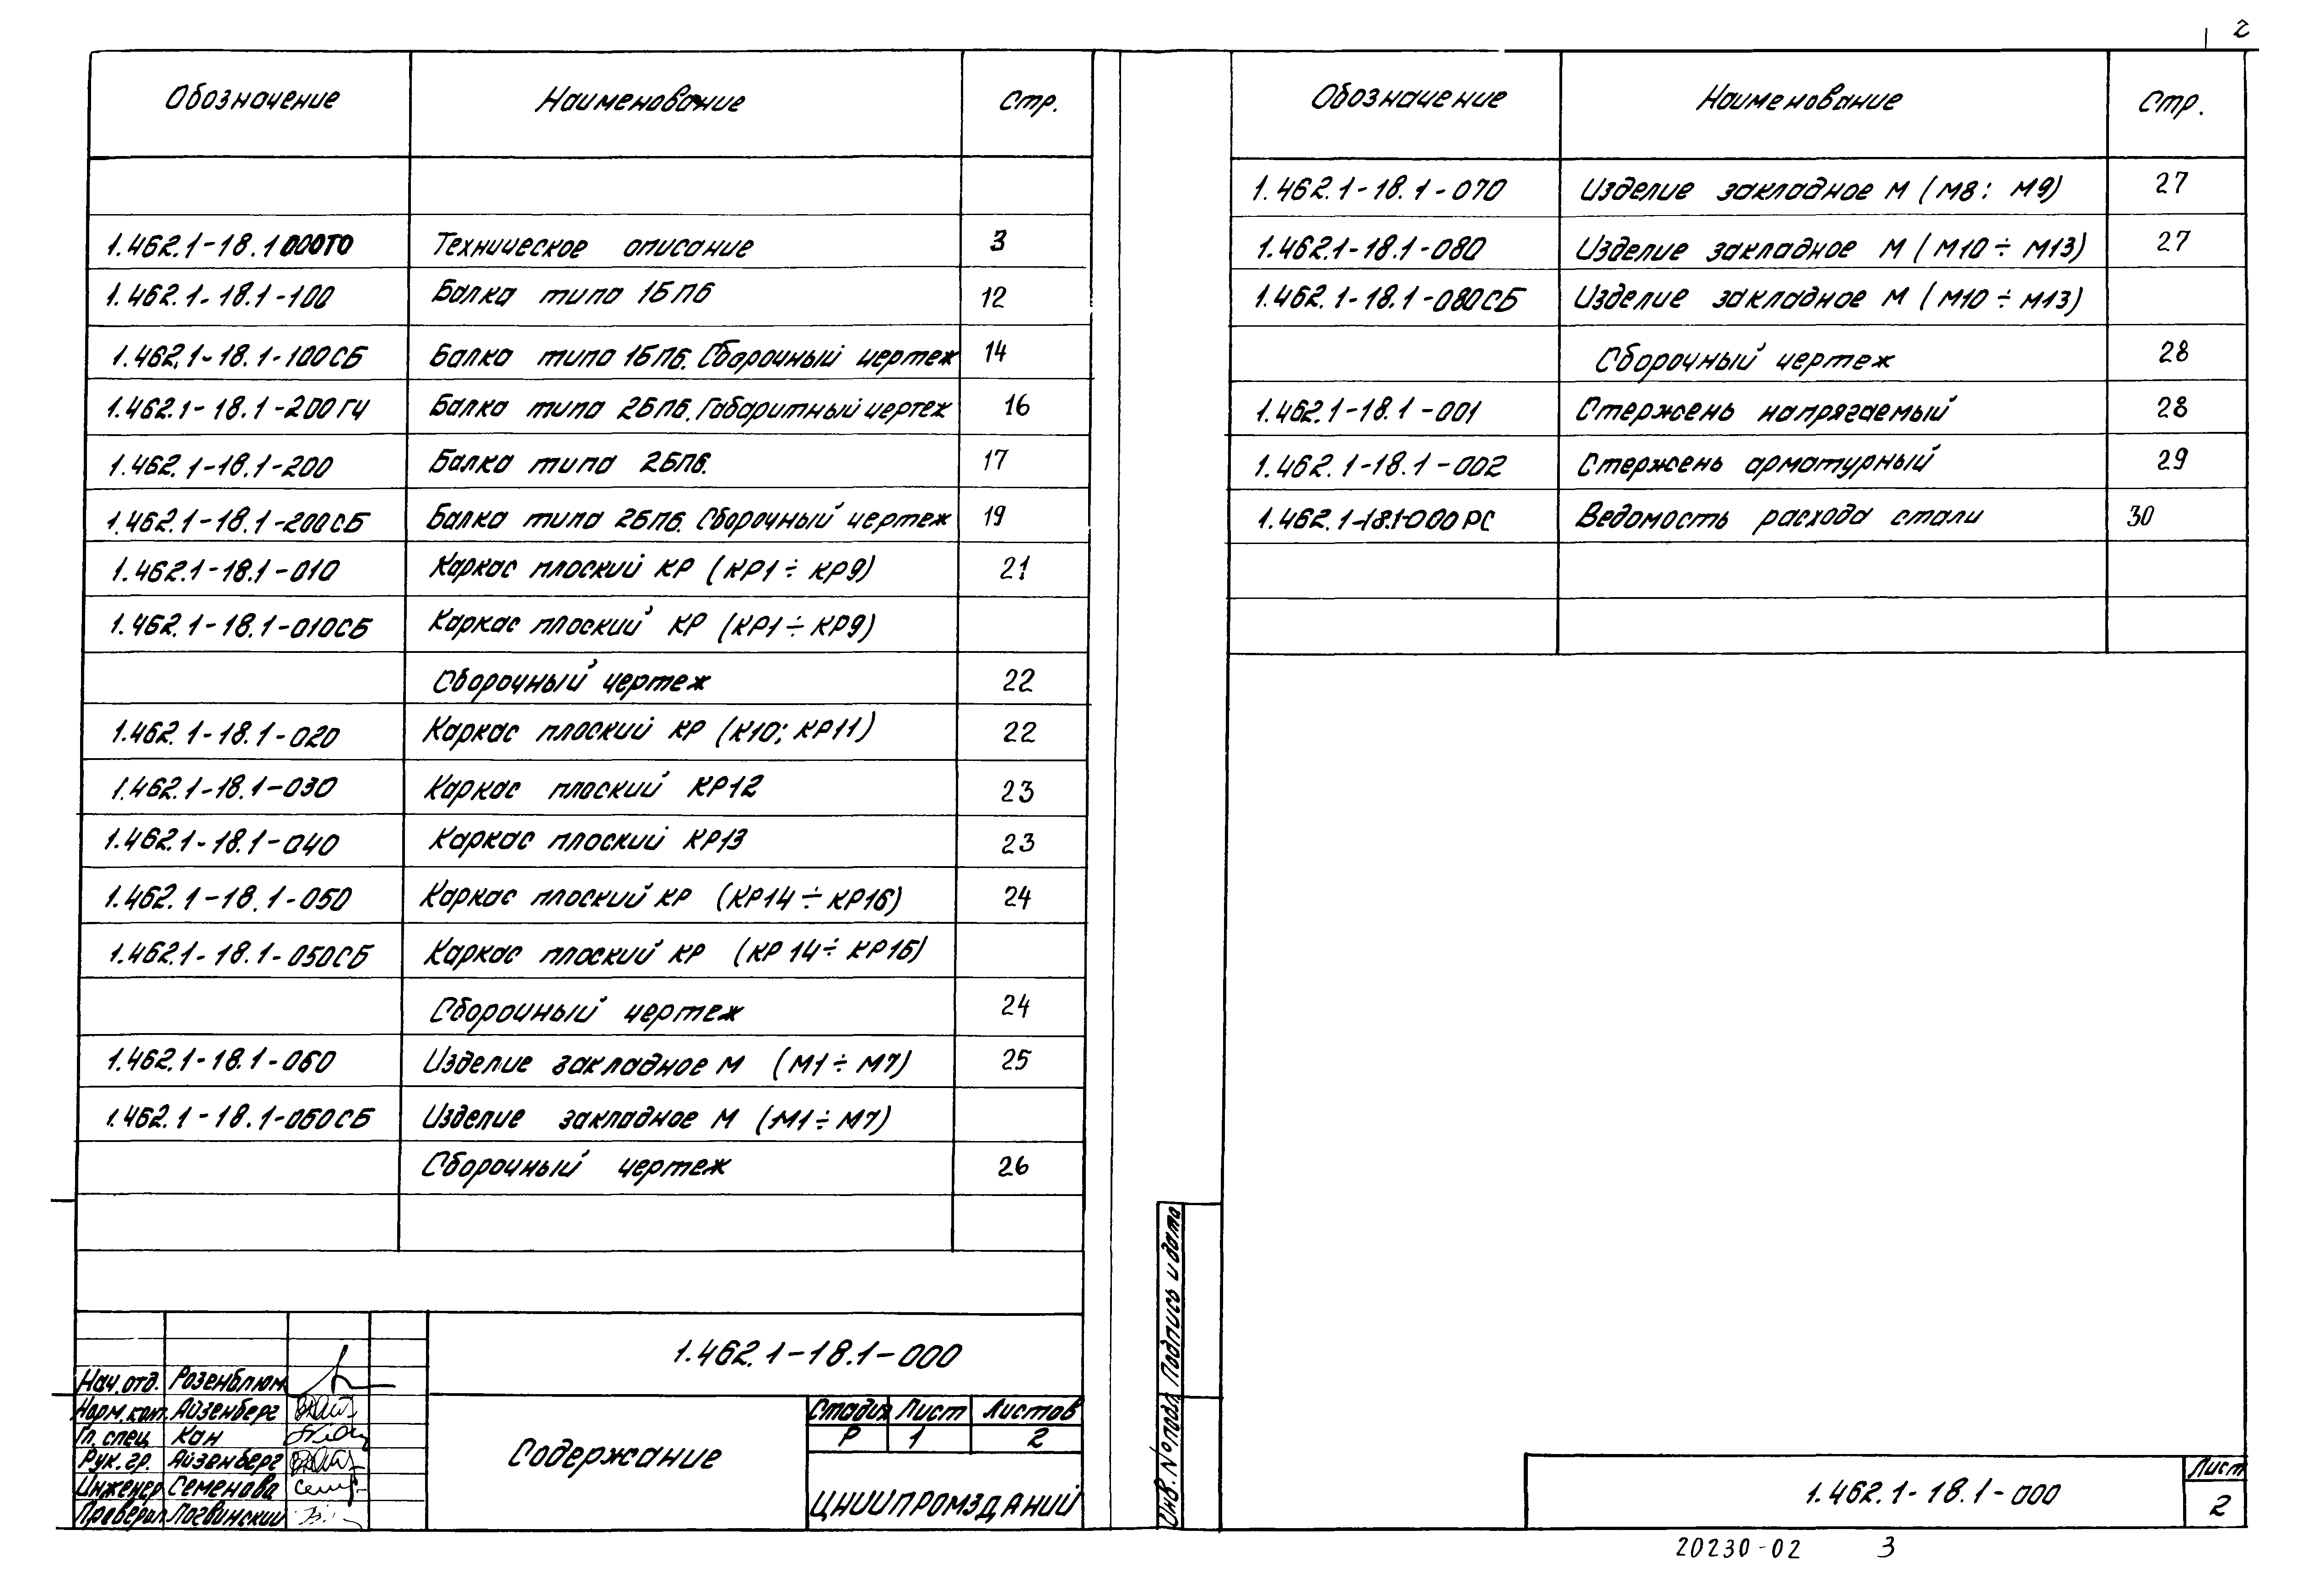 2
Обозначение Наименование Стр.
1.462.1-18.1000ТО Техническое описание 3
1.462.1-18.1-100 Балка типа 1БП6 12
1.462.1-18.1-100СБ Балка типа 1БП6. Сборочный чертеж 14
1.462.1-18.1-200ГЧ Балка типа 2БП6. Габаритный чертеж 16
1.462.1-18.1-200 Балка типа 2БП6. 17
1.462.1-18.1-200СБ Балка типа 2БП6. Сборочный чертеж 19
1.462.1-18.1-010 Каркас плоский КР (КР1÷КР9) 21
1.462.1-18.1-010СБ Каркас плоский КР (КР1÷КР9)
Сборочный чертеж 22
1.462.1-18.1-020 Каркас плоский КР (К10; КР11) 22
1.462.1-18.1-030 Каркас плоский КР12 23
1.462.1-18.1-040 Каркас плоский КР13 23
1.462.1-18.1-050 Каркас плоский КР (КР14÷КР16) 24
1.462.1-18.1-050СБ Каркас плоский КР (КР14÷КР16)
Сборочный чертеж 24
1.462.1-18.1-060 Изделие закладное М (М1÷М7) 25
1.462.1-18.1-060СБ Изделие закладное М (М1÷М7)
Сборочный чертеж 26
1.462.1-18.1-000
Нач.отд. Розенблюм
Норм.кон. Айзенберг
Гл. спец. Кан
Рук. гр. Айзенберг
Инженер Семенова
Проверил Логвинский
Содержание
Стадия Лист Листов
Р 1 2
ЦНИИПРОМЗДАНИЙ
Обозначение Наименование Стр.
1.462.1-18.1-070 Изделие закладное М (М8; М9) 27
1.462.1-18.1-080 Изделие закладное М (М10÷М13) 27
1.462.1-18.1-080СБ Изделие закладное М (М10÷М13)
Сборочный чертеж 28
1.462.1-18.1-001 Стержень напрягаемый 28
1.462.1-18.1-002 Стержень арматурный 29
1.462.1-18.1-000РС Ведомость расхода стали 30
Инв. № подл. Подпись и дата
1.462.1-18.1-000
Лист
2
20230-02 3